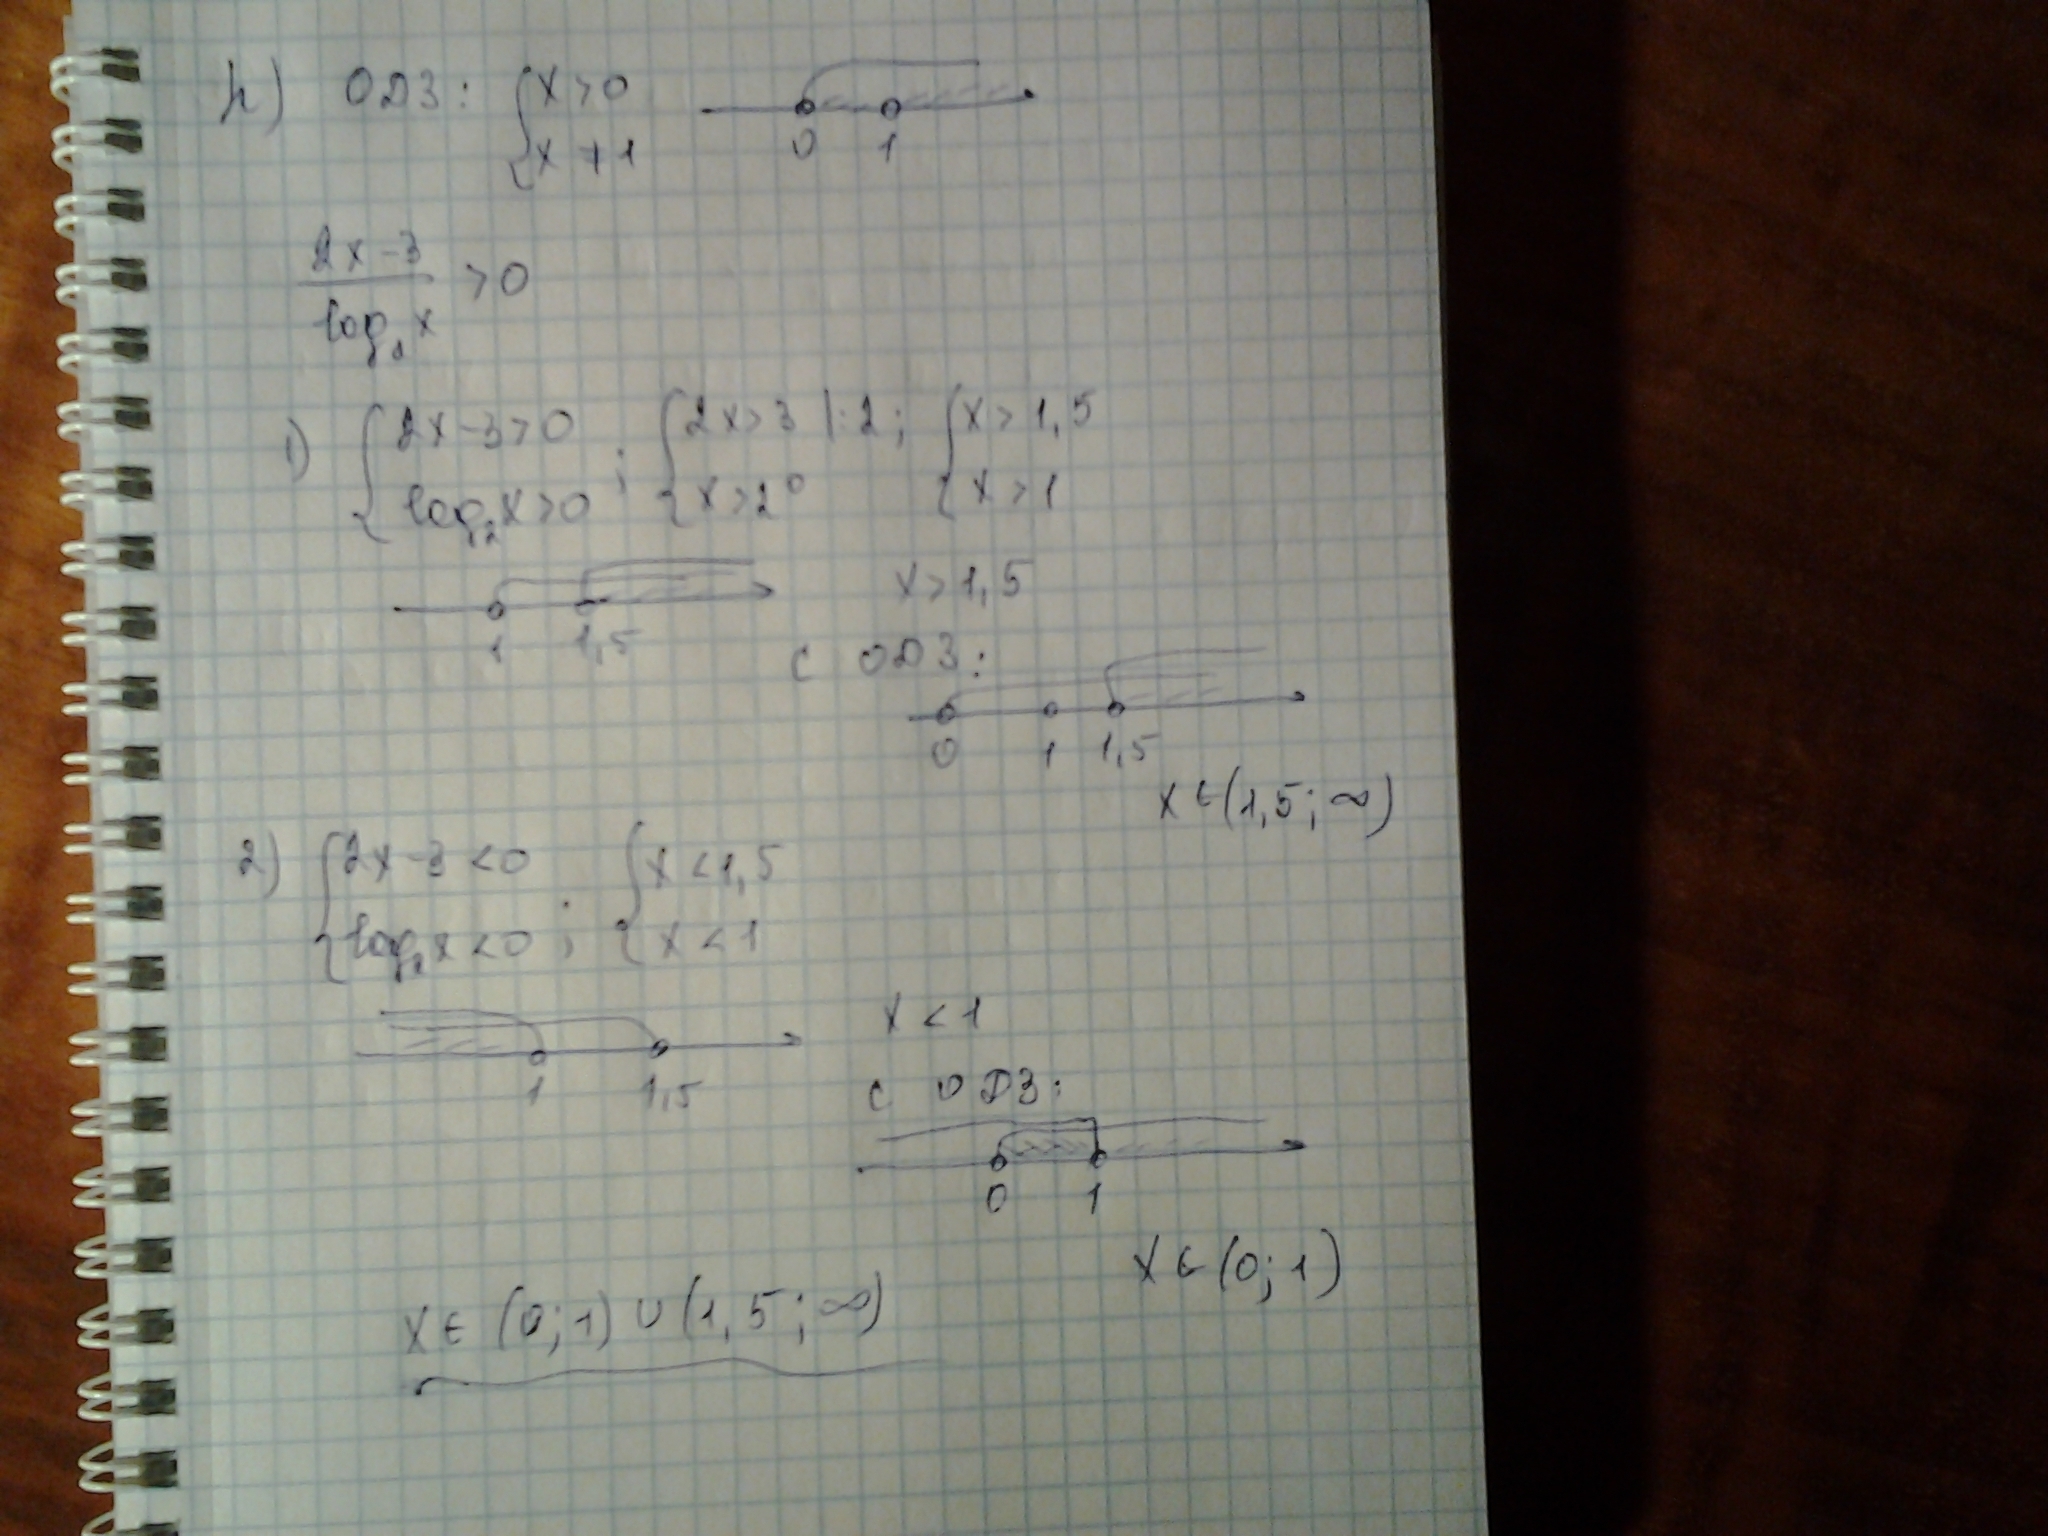 h) ОДЗ: { x > 0
x ≠ 1
0 1
2x-3 / log₂x > 0
1) { 2x-3>0 ; { 2x>3 |:2; { x>1,5
log₂x>0 x>2⁰ x>1
1 1,5
x>1,5
с ОДЗ:
0 1 1,5
x∈(1,5;∞)
2) { 2x-3<0 ; { x<1,5
log₂x<0 x<1
1 1,5
x<1
с ОДЗ:
0 1
x∈(0;1)
x∈(0;1)∪(1,5;∞)